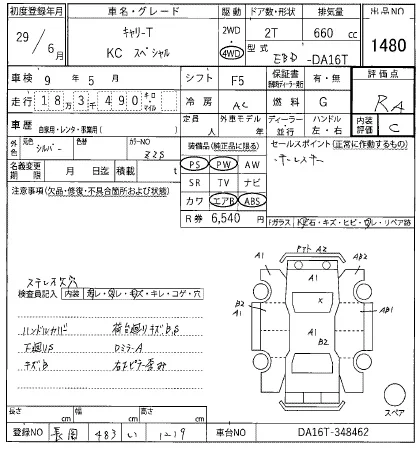 初度登録年月 車名・グレード 駆動 ドア数・形状 排気量 出品NO
29 6月 キャリーT 2WD・4WD 2T 660 cc 1480
KC スペシャル 型式 EBD-DA16T
車検 9年 5月 シフト F5 保証書 有・無 評価点
走行 18万3千490 キロ・マイル 冷房 AC 燃料 G RA
車歴 自家用・レンタ・事業用( ) 定員 人 外車モデル 年 ディーラー・並行 ハンドル 左・右 内装評価 C
外色 元色 シルバー 色替 カラーNO Z2S 装備品(純正品に限る) セールスポイント(正常に作動するもの)
名義変更期限 月 日迄 積載 t PS PW AW
SR TV ナビ
注意事項(欠品・修復・不具合箇所および状態) カワ エアB ABS
R券 6,540円 Fガラス
ステレオ欠穴 P2ト A2
検査員記入 内装 キレ・コゲ・穴 A1 AB2
ハンドルカバー 荷台廻りキズB,S B2 A1 X AB1
下廻りS DミラーA A1 B2
キズB A1
スペア
長さ cm 幅 cm 高さ cm
登録NO 長岡 483 い 1219 車台NO DA16T-348462